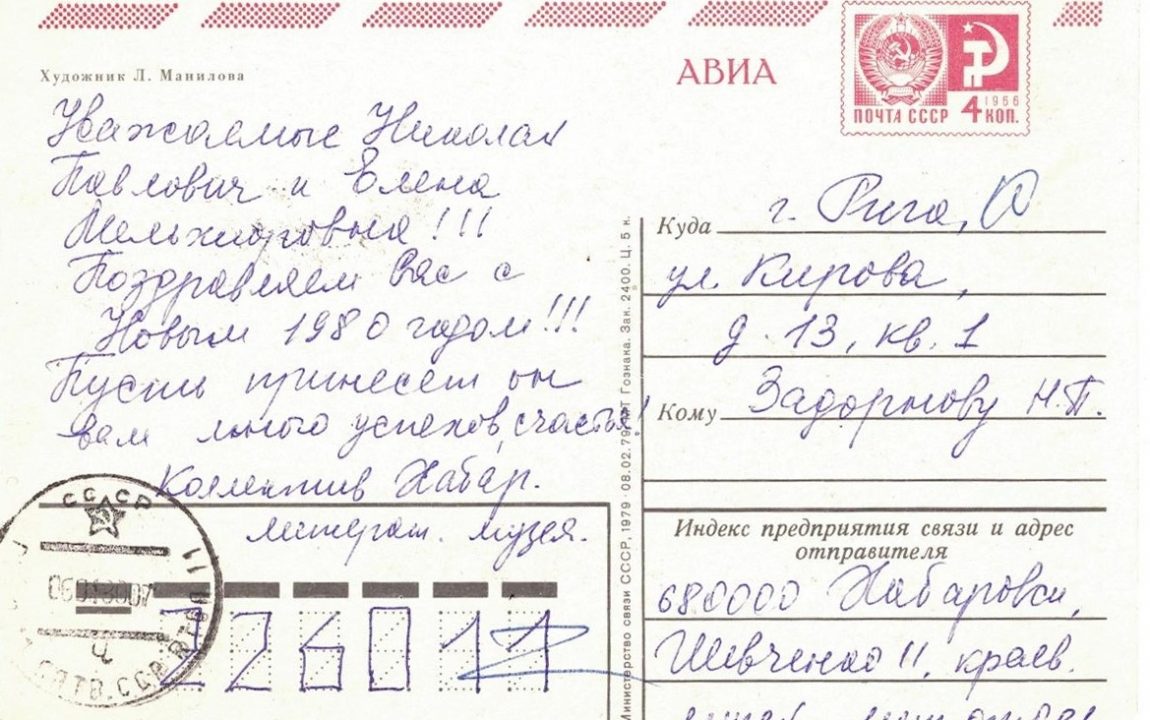 Художник Л. Манилова
АВИА
ПОЧТА СССР 4 КОП.
1966
Уважаемые Николай
Павлович и Елена
Мельхиоровна!!!
Поздравляем Вас с
Новым 1980 годом!!!
Пусть принесет он
вам много успехов, счастья!
Коллектив Хабар.
литерат. музея.
Куда г. Рига,
ул. Кирова,
д. 13, кв. 1
Кому Задорнову Н.П.
Индекс предприятия связи и адрес
отправителя
680000 Хабаровск,
Шевченко 11, краев.
СССР
226011
Министерство связи СССР, 1979 · 08.02.79. Гознака. Зак. 2400. Ц. 5 к.